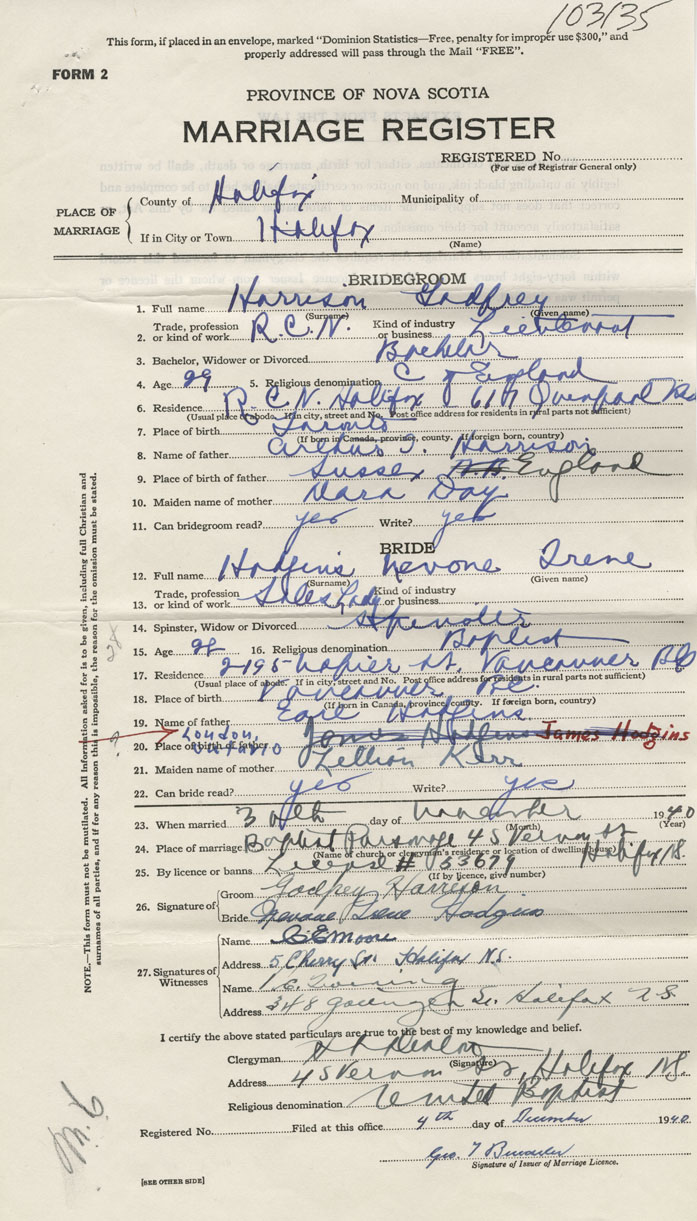 103/35
This form, if placed in an envelope, marked "Dominion Statistics—Free, penalty for improper use $300," and
properly addressed will pass through the Mail "FREE".
FORM 2
PROVINCE OF NOVA SCOTIA
MARRIAGE REGISTER
REGISTERED No.
(For use of Registrar General only)
PLACE OF MARRIAGE
County of Halifax Municipality of
If in City or Town Halifax
(Name)
BRIDEGROOM
1. Full name Harrison Godfrey
(Surname) (Given name)
2. Trade, profession or kind of work R.C.N. Kind of industry or business Lieutenant
3. Bachelor, Widower or Divorced Bachelor
4. Age 29 5. Religious denomination C of England
6. Residence R.C.N. Halifax
(Usual place of abode. If in city, street and No. Post office address for residents in rural parts not sufficient)
7. Place of birth Toronto
(If born in Canada, province, county. If foreign born, country)
8. Name of father Arthur J. Harrison
9. Place of birth of father Sussex England
10. Maiden name of mother Mara Day
11. Can bridegroom read? yes Write? yes
BRIDE
12. Full name Hodgins Nevone Irene
(Surname) (Given name)
13. Trade, profession or kind of work Sales Lady Kind of industry or business
14. Spinster, Widow or Divorced Spinster
15. Age 28 16. Religious denomination Baptist
17. Residence 2195 Napier St. Vancouver BC
(Usual place of abode. If in city, street and No. Post office address for residents in rural parts not sufficient)
18. Place of birth Vancouver B.C.
(If born in Canada, province, county. If foreign born, country)
19. Name of father Earl Hodgins
20. Place of birth of father London, Ontario James Hodgins James Hodgins
21. Maiden name of mother Lillian Kerr
22. Can bride read? yes Write? yes
23. When married 30th day of November 1940
(Month) (Year)
24. Place of marriage Baptist Parsonage 45 Vernon St. Halifax N.S.
(Name of church or clergyman's residence or location of dwelling house)
25. By licence or banns License # 33679
(If by licence, give number)
26. Signature of
Groom Godfrey Harrison
Bride Nevone Irene Hodgins
27. Signatures of Witnesses
Name C E Moore
Address 5 Cherry St. Halifax N.S.
Name
Address 348 St. Halifax N.S.
I certify the above stated particulars are true to the best of my knowledge and belief.
Clergyman
(Signature)
Address 45 Vernon St, Halifax N.S.
Religious denomination United Baptist
Registered No. Filed at this office 4th day of December 1940
Geo. T
Signature of Issuer of Marriage Licence.
[SEE OTHER SIDE]
NOTE.—This form must not be mutilated. All information asked for is to be given, including full Christian and
surnames of all parties, and if for any reason this is impossible, the reason for the omission must be stated.